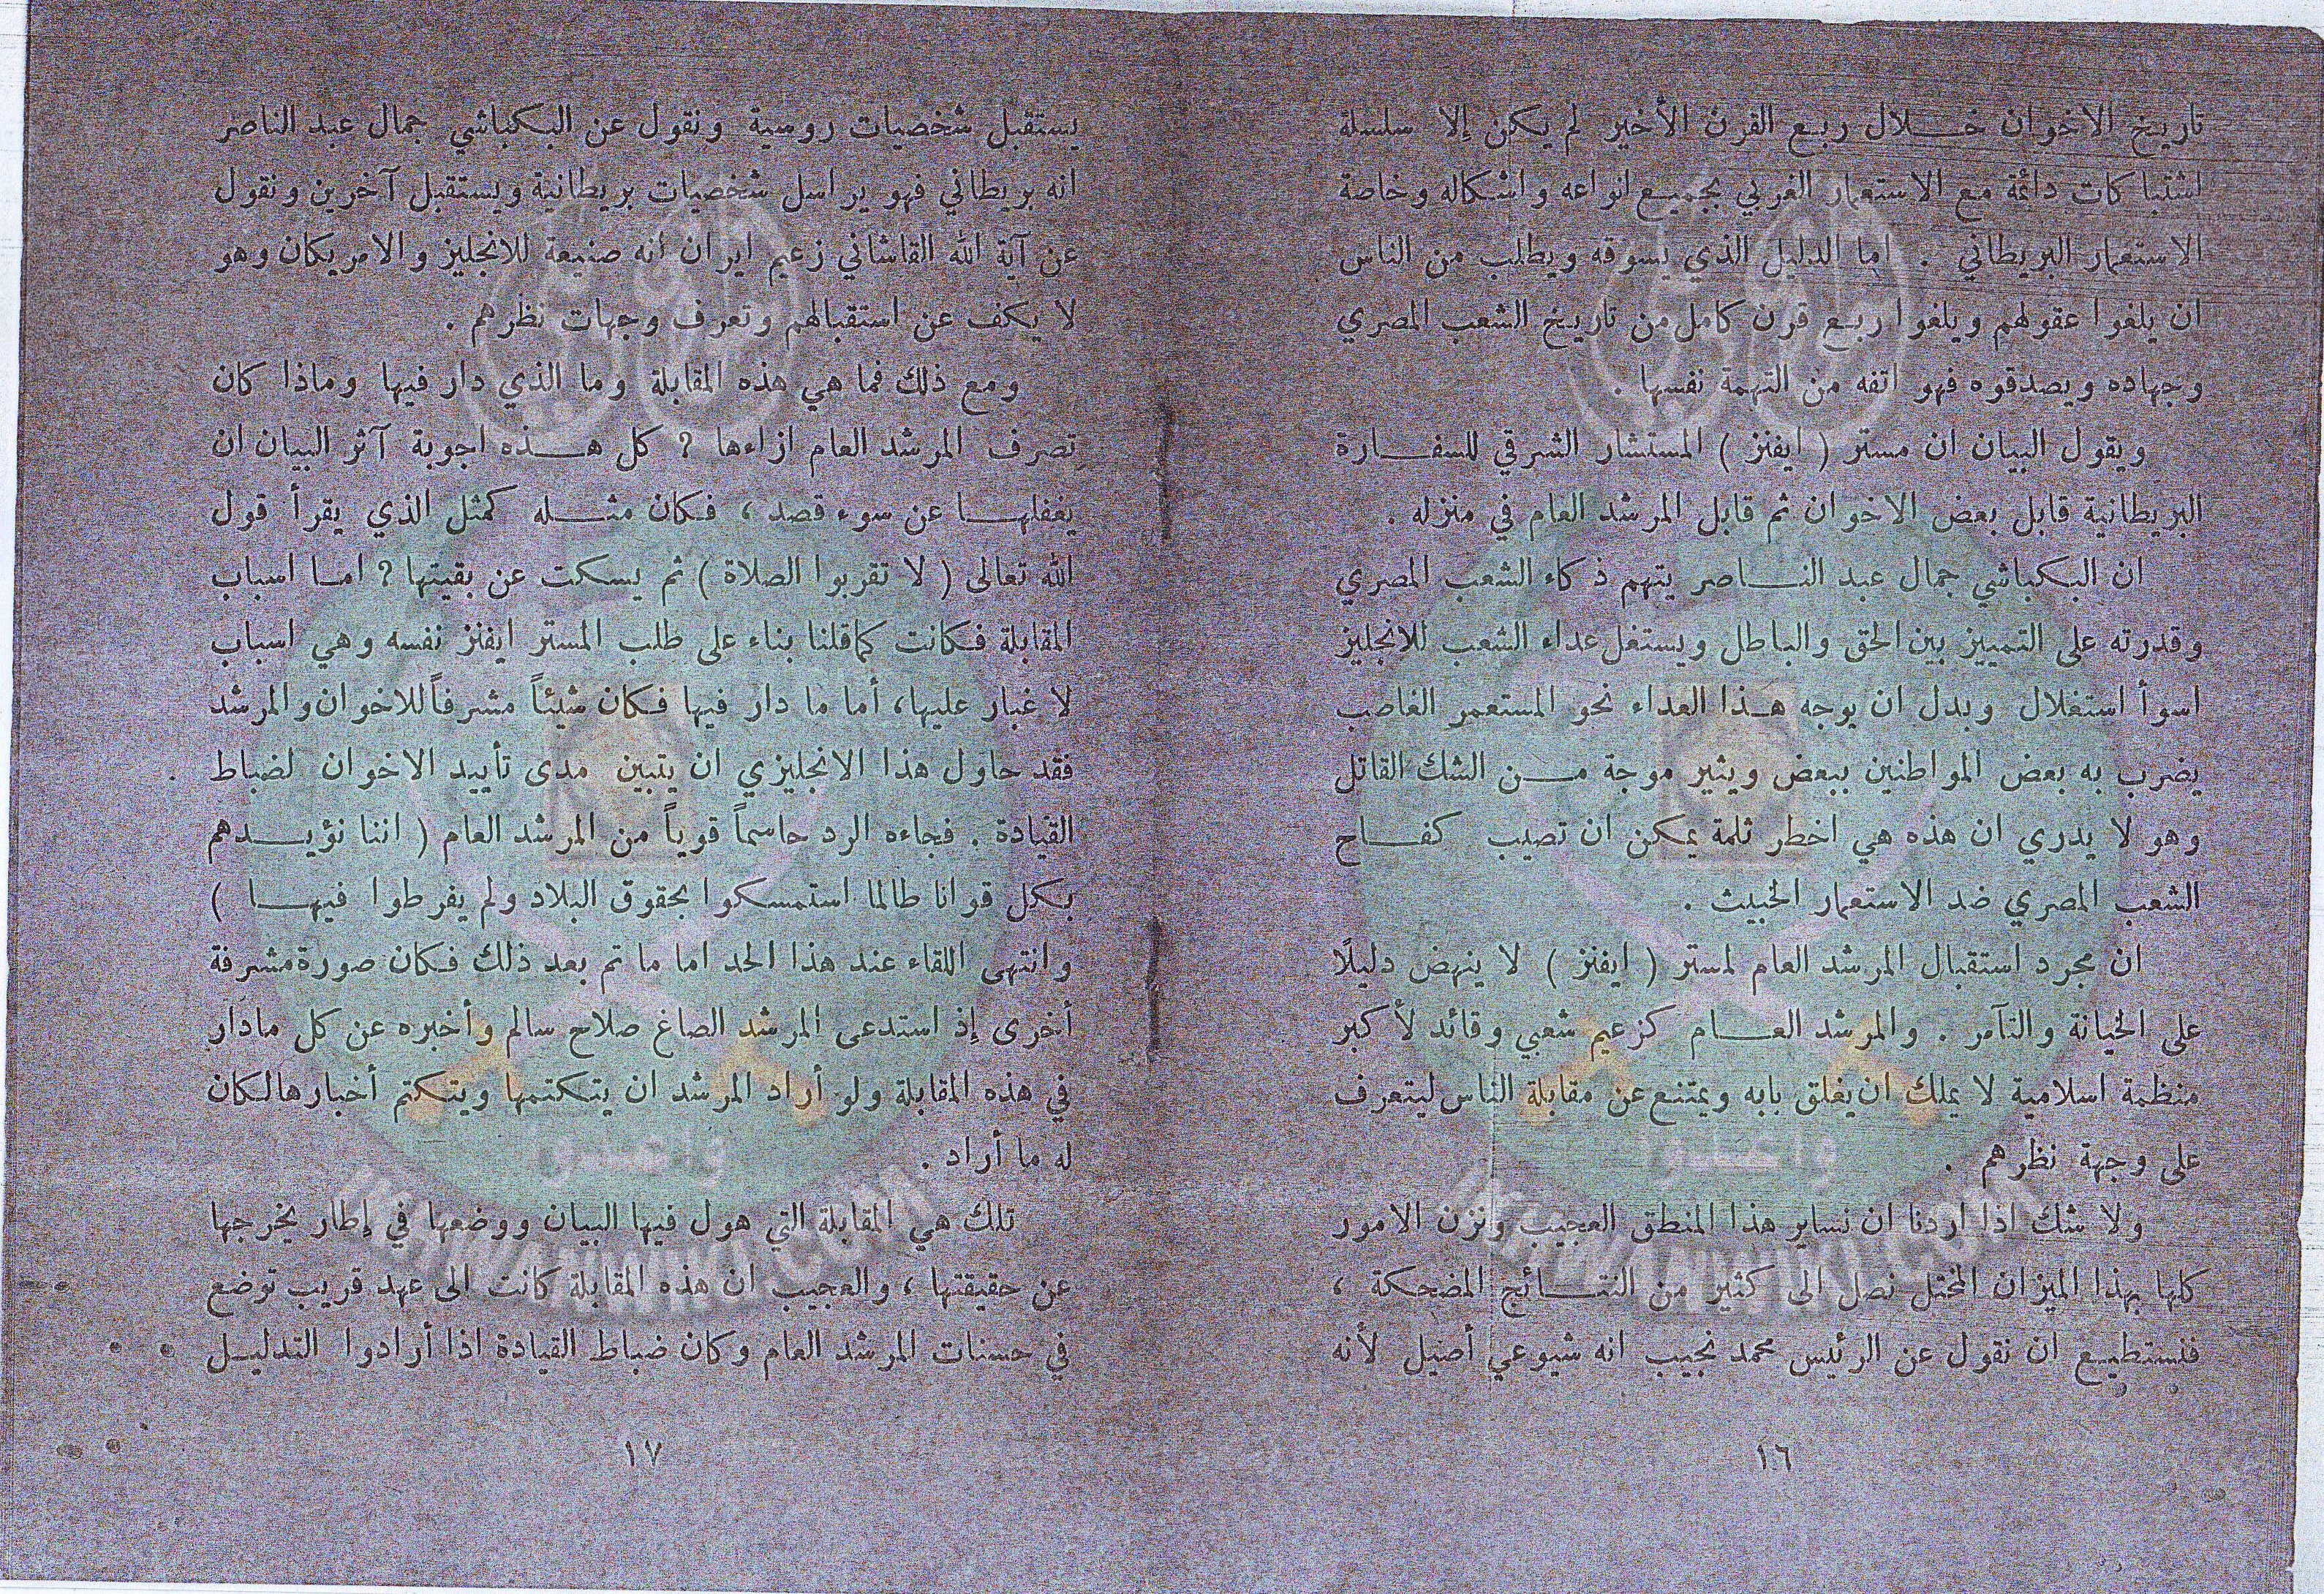 تاريخ الاخوان خلال ربع القرن الأخير لم يكن إلا سلسلة
اشتباكات دائمة مع الاستعمار الغربي بجميع انواعه واشكاله وخاصة
الاستعمار البريطاني . اما الدليل الذي يسوقه ويطلب من الناس
ان يلغوا عقولهم ويلغوا ربع قرن كامل من تاريخ الشعب المصري
وجهاده ويصدقوه فهو اتفه من التهمة نفسها .
ويقول البيان ان مستر ( ايفنز ) المستشار الشرقي للسفارة
البريطانية قابل بعض الاخوان ثم قابل المرشد العام في منزله .
ان البكباشي جمال عبد الناصر يتهم ذكاء الشعب المصري
وقدرته على التمييز بين الحق والباطل ويستغل عداء الشعب للانجليز
اسوأ استغلال وبدل ان يوجه هذا العداء نحو المستعمر الغاصب
يضرب به بعض المواطنين ببعض ويثير موجة من الشك القاتل
وهو لا يدري ان هذه هي اخطر ثلمة يمكن ان تصيب كفاح
الشعب المصري ضد الاستعمار الخبيث .
ان مجرد استقبال المرشد العام لمستر ( ايفنز ) لا ينهض دليلًا
على الخيانة والتآمر . والمرشد العام كزعيم شعبي وقائد لأكبر
منظمة اسلامية لا يملك ان يغلق بابه ويمتنع عن مقابلة الناس ليتعرف
على وجهة نظرهم .
ولا شك اذا اردنا ان نساير هذا المنطق العجيب ونزن الامور
كلها بهذا الميزان المختل نصل الى كثير من النتائج المضحكة ،
فنستطيع ان نقول عن الرئيس محمد نجيب انه شيوعي أصيل لأنه
١٦
يستقبل شخصيات روسية ونقول عن البكباشي جمال عبد الناصر
انه بريطاني فهو يراسل شخصيات بريطانية ويستقبل آخرين ونقول
عن آية الله القاشاني زعيم ايران انه صنيعة للانجليز والامريكان وهو
لا يكف عن استقبالهم وتعرف وجهات نظرهم .
ومع ذلك فما هي هذه المقابلة وما الذي دار فيها وماذا كان
تصرف المرشد العام ازاءها ؟ كل هذه اجوبة آثر البيان ان
يغفلها عن سوء قصد ، فكان مثله كمثل الذي يقرأ قول
الله تعالى ( لا تقربوا الصلاة ) ثم يسكت عن بقيتها ؟ اما اسباب
المقابلة فكانت كما قلنا بناء على طلب المستر ايفنز نفسه وهي اسباب
لا غبار عليها، أما ما دار فيها فكان شيئاً مشرفاً للاخوان والمرشد
فقد حاول هذا الانجليزي ان يتبين مدى تأييد الاخوان لضباط .
القيادة . فجاءه الرد حاسماً قوياً من المرشد العام ( اننا نؤيدهم
بكل قوانا طالما استمسكوا بحقوق البلاد ولم يفرطوا فيها )
وانتهى اللقاء عند هذا الحد اما ما تم بعد ذلك فكان صورة مشرفة
أخرى إذ استدعى المرشد الصاغ صلاح سالم وأخبره عن كل مادار
في هذه المقابلة ولو أراد المرشد ان يتكتمها ويتكتم أخبارها لكان
له ما أراد .
تلك هي المقابلة التي هول فيها البيان ووضعها في إطار يخرجها
عن حقيقتها ، والعجيب ان هذه المقابلة كانت الى عهد قريب توضع
في حسنات المرشد العام وكان ضباط القيادة اذا أرادوا التدليل
١٧